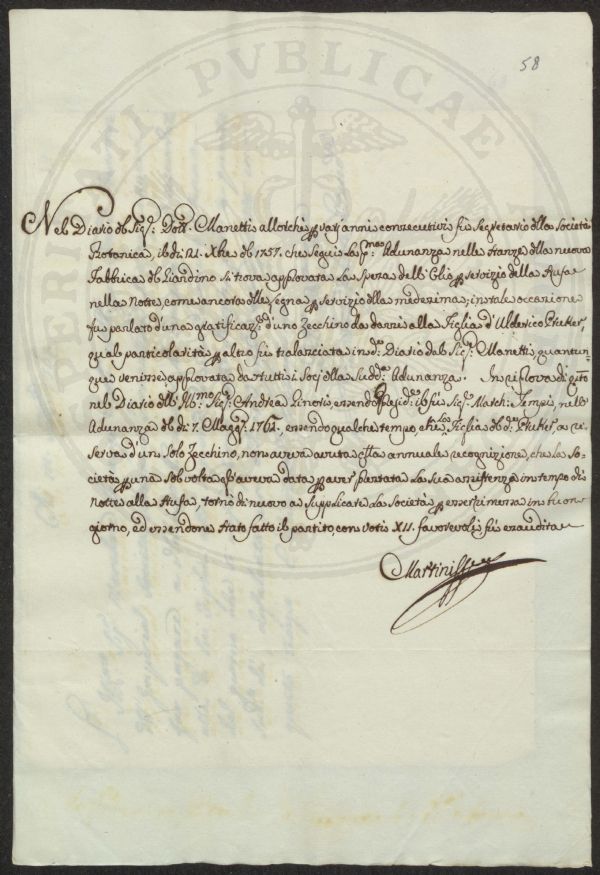 58
PERITATI PVBLICAE
Nel Diario del Sig.r Dott.r Manetti allorchè p varj anni consecutivi fù Segretario della Società
Botanica, il dì 21. Xbre del 1757. che seguì la p.ma Adunanza nelle stanze della nuova
Fabbrica del Giardino si trova approvata la spesa dell'Olio p servizio della Stufa
nella Notte, come ancora delle legna p servizio della medesima; in tale occasione
fu parlato d'una gratificaz.e d'uno Zecchino da darsi alla Figlia d'Ulderico
qual particolarità p altro fù tralasciata in d.o Diario dal Sig.r Manetti, quantun-
que venisse approvata da tutti i Socj della Sud.a Adunanza. In riprova di q.to
nel Diario dell' Ill.mo Sig.r Andrea Ginori, essendo Presid.e il fù Sig.r March. Tempi, nell'
Adunanza del dì 7. Magg.o 1761. essendo qualche tempo, che la Figlia del d.o a ri-
serva d'un solo Zecchino, non aveva avuta q.ta annuale recognizione, che la So-
cietà p una sol volta gl'aveva data p aver prestata la sua assistenza in tempo di
notte alla Stufa, tornò di nuovo a supplicare la Società p essere rimessa in buon
giorno, ed essendone stato fatto il partito, con Voti XII. favorevoli, fù esaudita
Martini